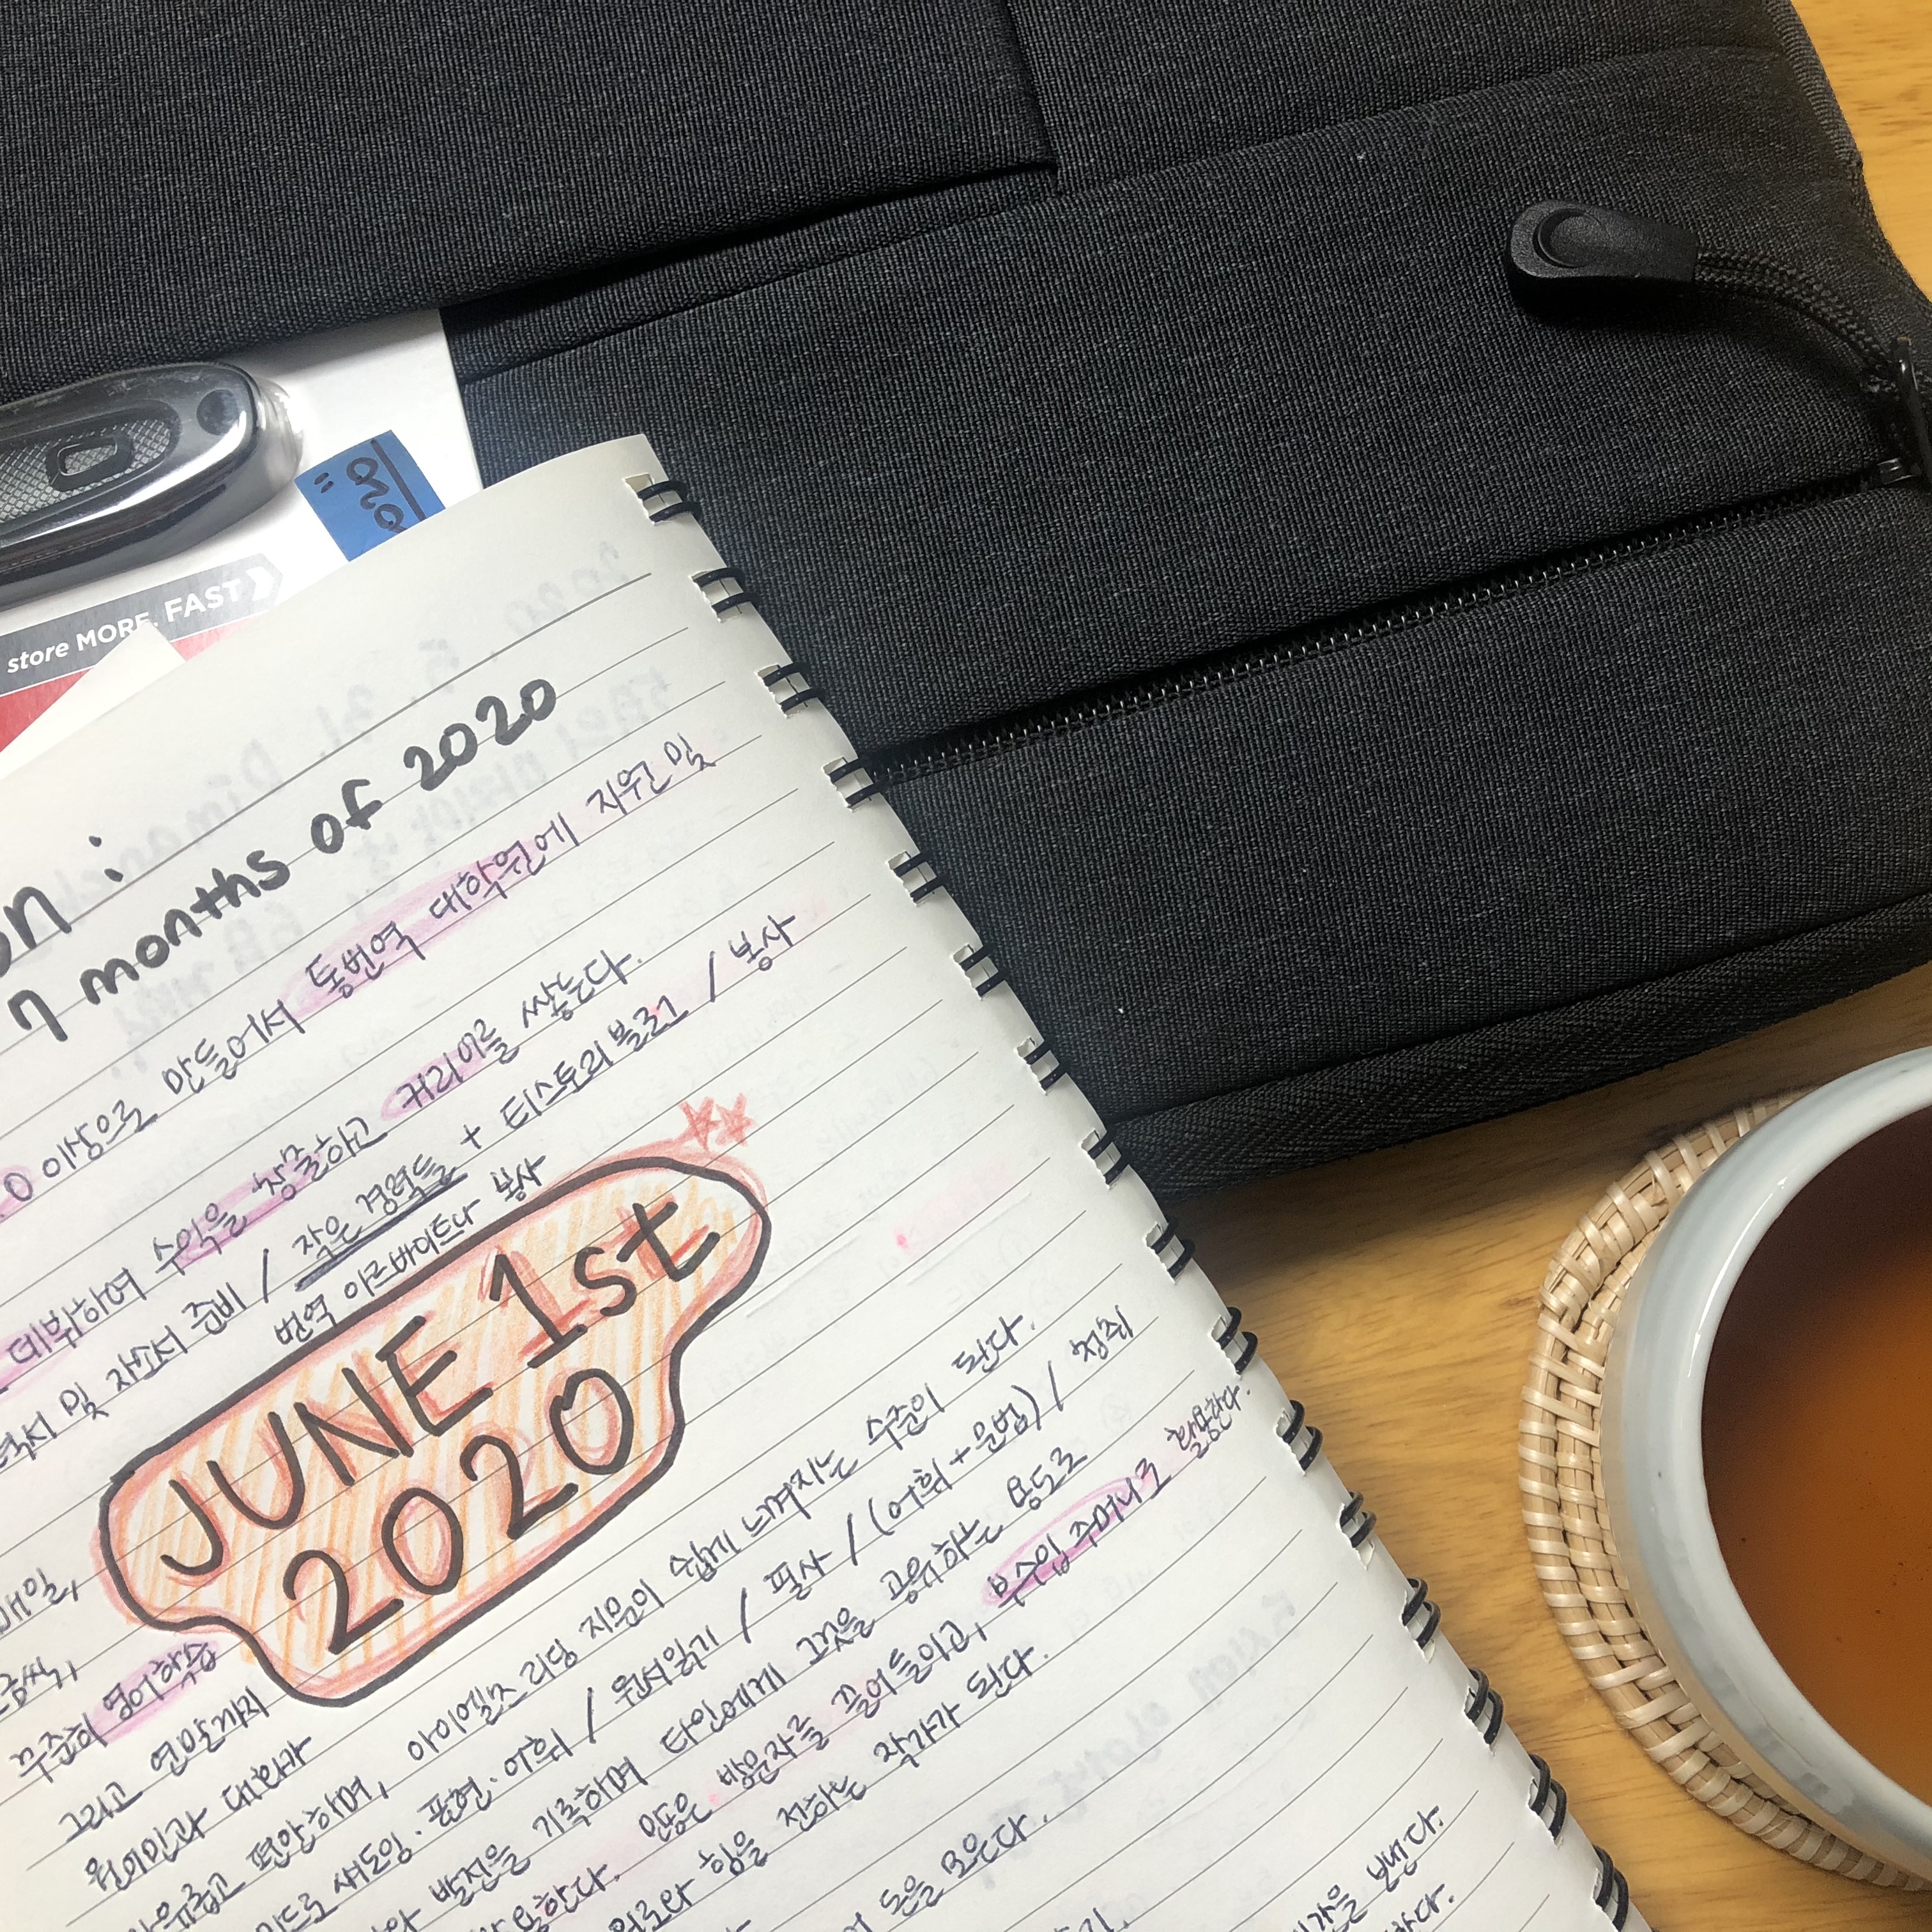 store MORE. FAST
on :
7 months of 2020
0 이상으로 만들어서 통번역 대학원에 지원 및
데뷔하여 수익을 창출하고 커리어를 쌓는다.
및 자소서 준비 / 작은 경력들 + 티스토리 블로그 / 봉사
번역 아르바이트나 봉사
JUNE 1st
2020
매일,
꾸준히 영어학습
그리고 연말까지
원어민과 대화가
편안하며, 아이엘츠 리딩 지문이 쉽게 느껴지는 수준이 된다.
쉐도잉 · 표현 · 어휘 / 원서읽기 / 필사 / (어휘 + 문법) / 청취
발전을 기록하며 타인에게 그것을 공유하는 용도로
많은 방문자를 끌어들이고, 부수입 주머니로 활용한다.
위로와 힘을 전하는 작가가 된다.
돈을 모은다.
시간을 보낸다.